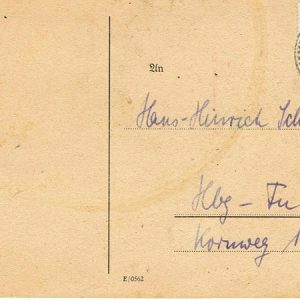 An
Hans-Hinrich Sch
Hbg-Fu
Kornweg 1
E/0562